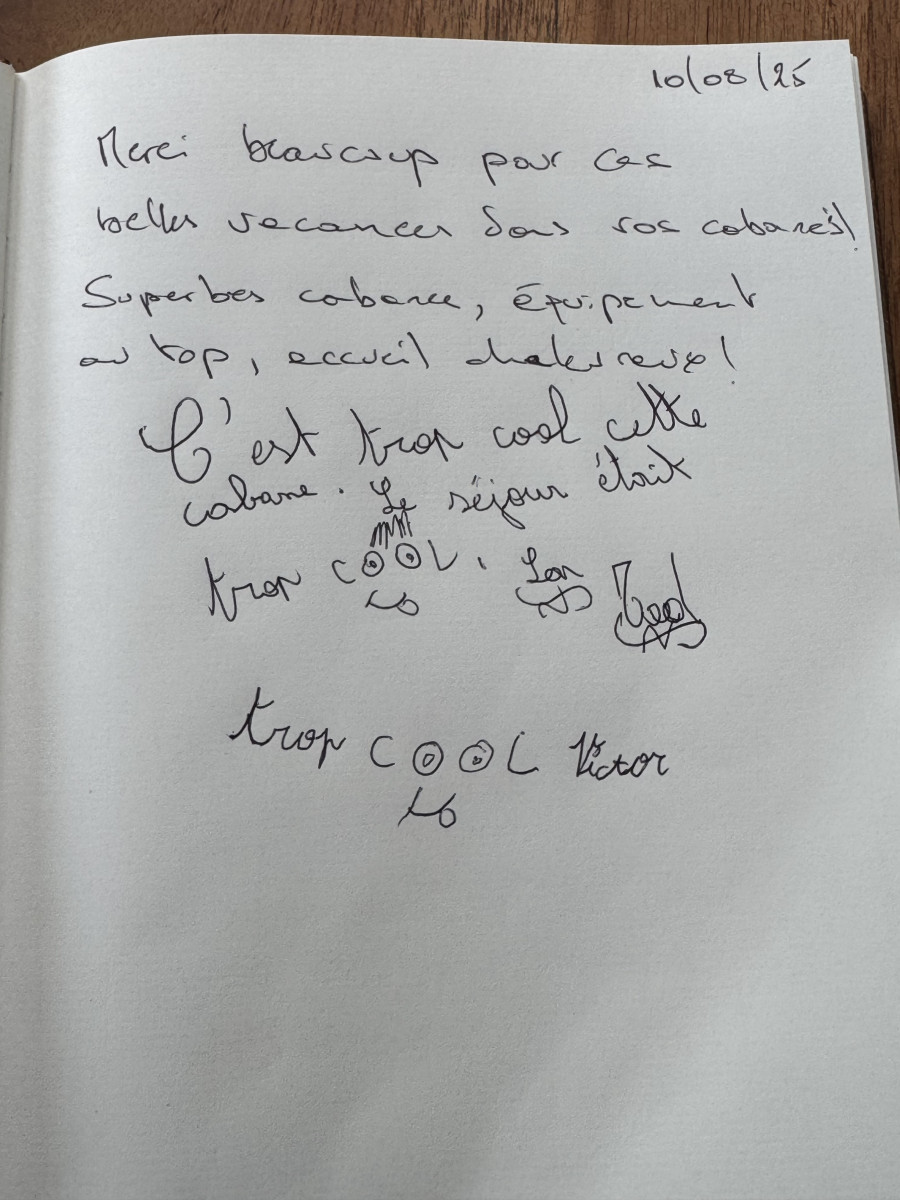 10/08/25
Merci beaucoup pour ces
belles vacances dans vos cabanes!
Superbes cabanes, équipement
au top, accueil chaleureux!
C'est trop cool cette
cabane. Le séjour était
trop COOL.
trop COOL Victor